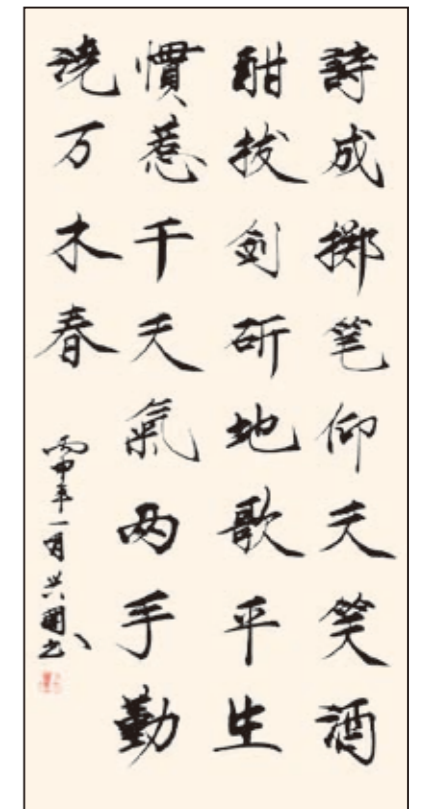 詩成掷笔仰天笑酒
酣拔剑斫地歌平生
慣惹千天氣两手勤
浇万木春
丙申年一月兴国书